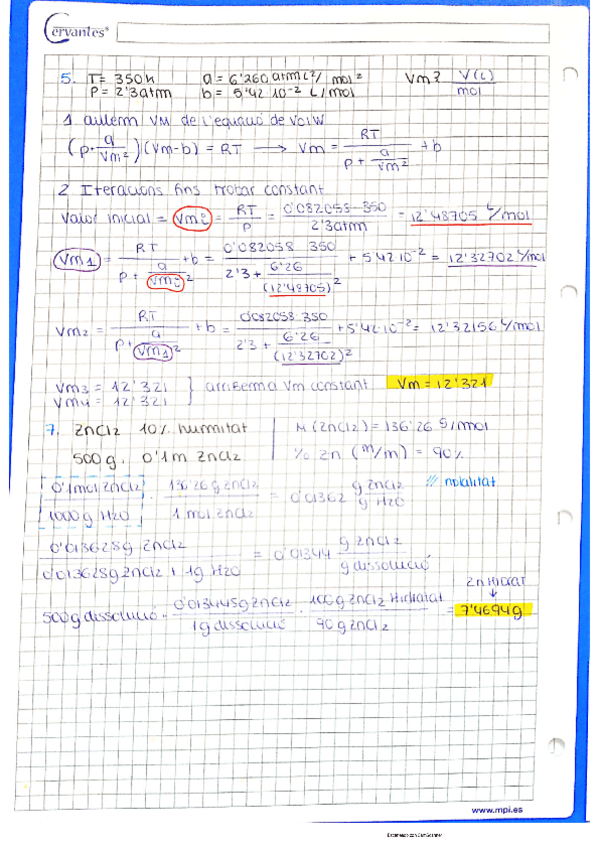 Cervantes®
5. T= 350K a = 6'260 atm L²/mol² Vm? V(L)/mol
P = 2'3atm b = 5'42 10⁻² L/mol
1 aïllem VM de l'equació de VdW
(P+a/Vm²)(Vm-b) = RT → Vm = RT/(P+a/Vm²) + b
2 Iteracions fins trobar constant
Valor inicial = Vm⁰ = RT/P = 0'082058 350/2'3atm = 12'48705 L/mol
Vm₁ = RT/(P+a/Vm₀²) + b = 0'082058 350/(2'3+6'26/(12'48705)²) + 5'42 10⁻² = 12'32702 L/mol
Vm₂ = RT/(P+a/Vm₁²) + b = 0'082058 350/(2'3+6'26/(12'32702)²) + 5'42 10⁻² = 12'32156 L/mol
Vm₃ = 12'321 } arribem a Vm constant Vm = 12'321
Vm₄ = 12'321
7. ZnCl₂ 10% humitat M (ZnCl₂) = 136'26 g/mol
500g. 0'1m ZnCl₂ % Zn (m/m) = 90%
0'1mol ZnCl₂/1000g H₂O · 136'26 g ZnCl₂/1 mol ZnCl₂ = 0'01362 g ZnCl₂/g H₂O // molalitat
0'013628g ZnCl₂/0'013628g ZnCl₂ + 1g H₂O = 0'01344 g ZnCl₂/g dissolució
Zn Hidrat
500g dissolució · 0'01345g ZnCl₂/1g dissolució · 100g ZnCl₂ Hidratat/90g ZnCl₂ = 7'4694g
www.mpi.es